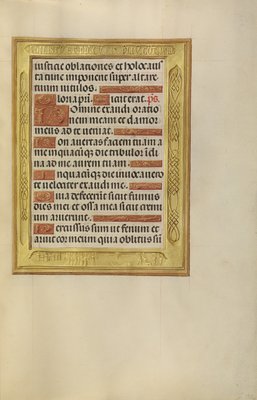 iusticie oblationes et holocaus
ta tunc imponent super altare
tuum vitulos.
Gloria pri. Sicut erat. ps.
Domine exaudi oratio
nem meam et clamor
meus ad te veniat.
Non avertas faciem tuam a
me in quacunque die tribulor incli
na ad me aurem tuam.
In quacunque die invocavero
te velociter exaudi me.
Quia defecerunt sicut fumus
dies mei et ossa mea sicut cremi
um aruerunt.
Percussus sum ut fenum et
aruit cor meum quia oblitus sū